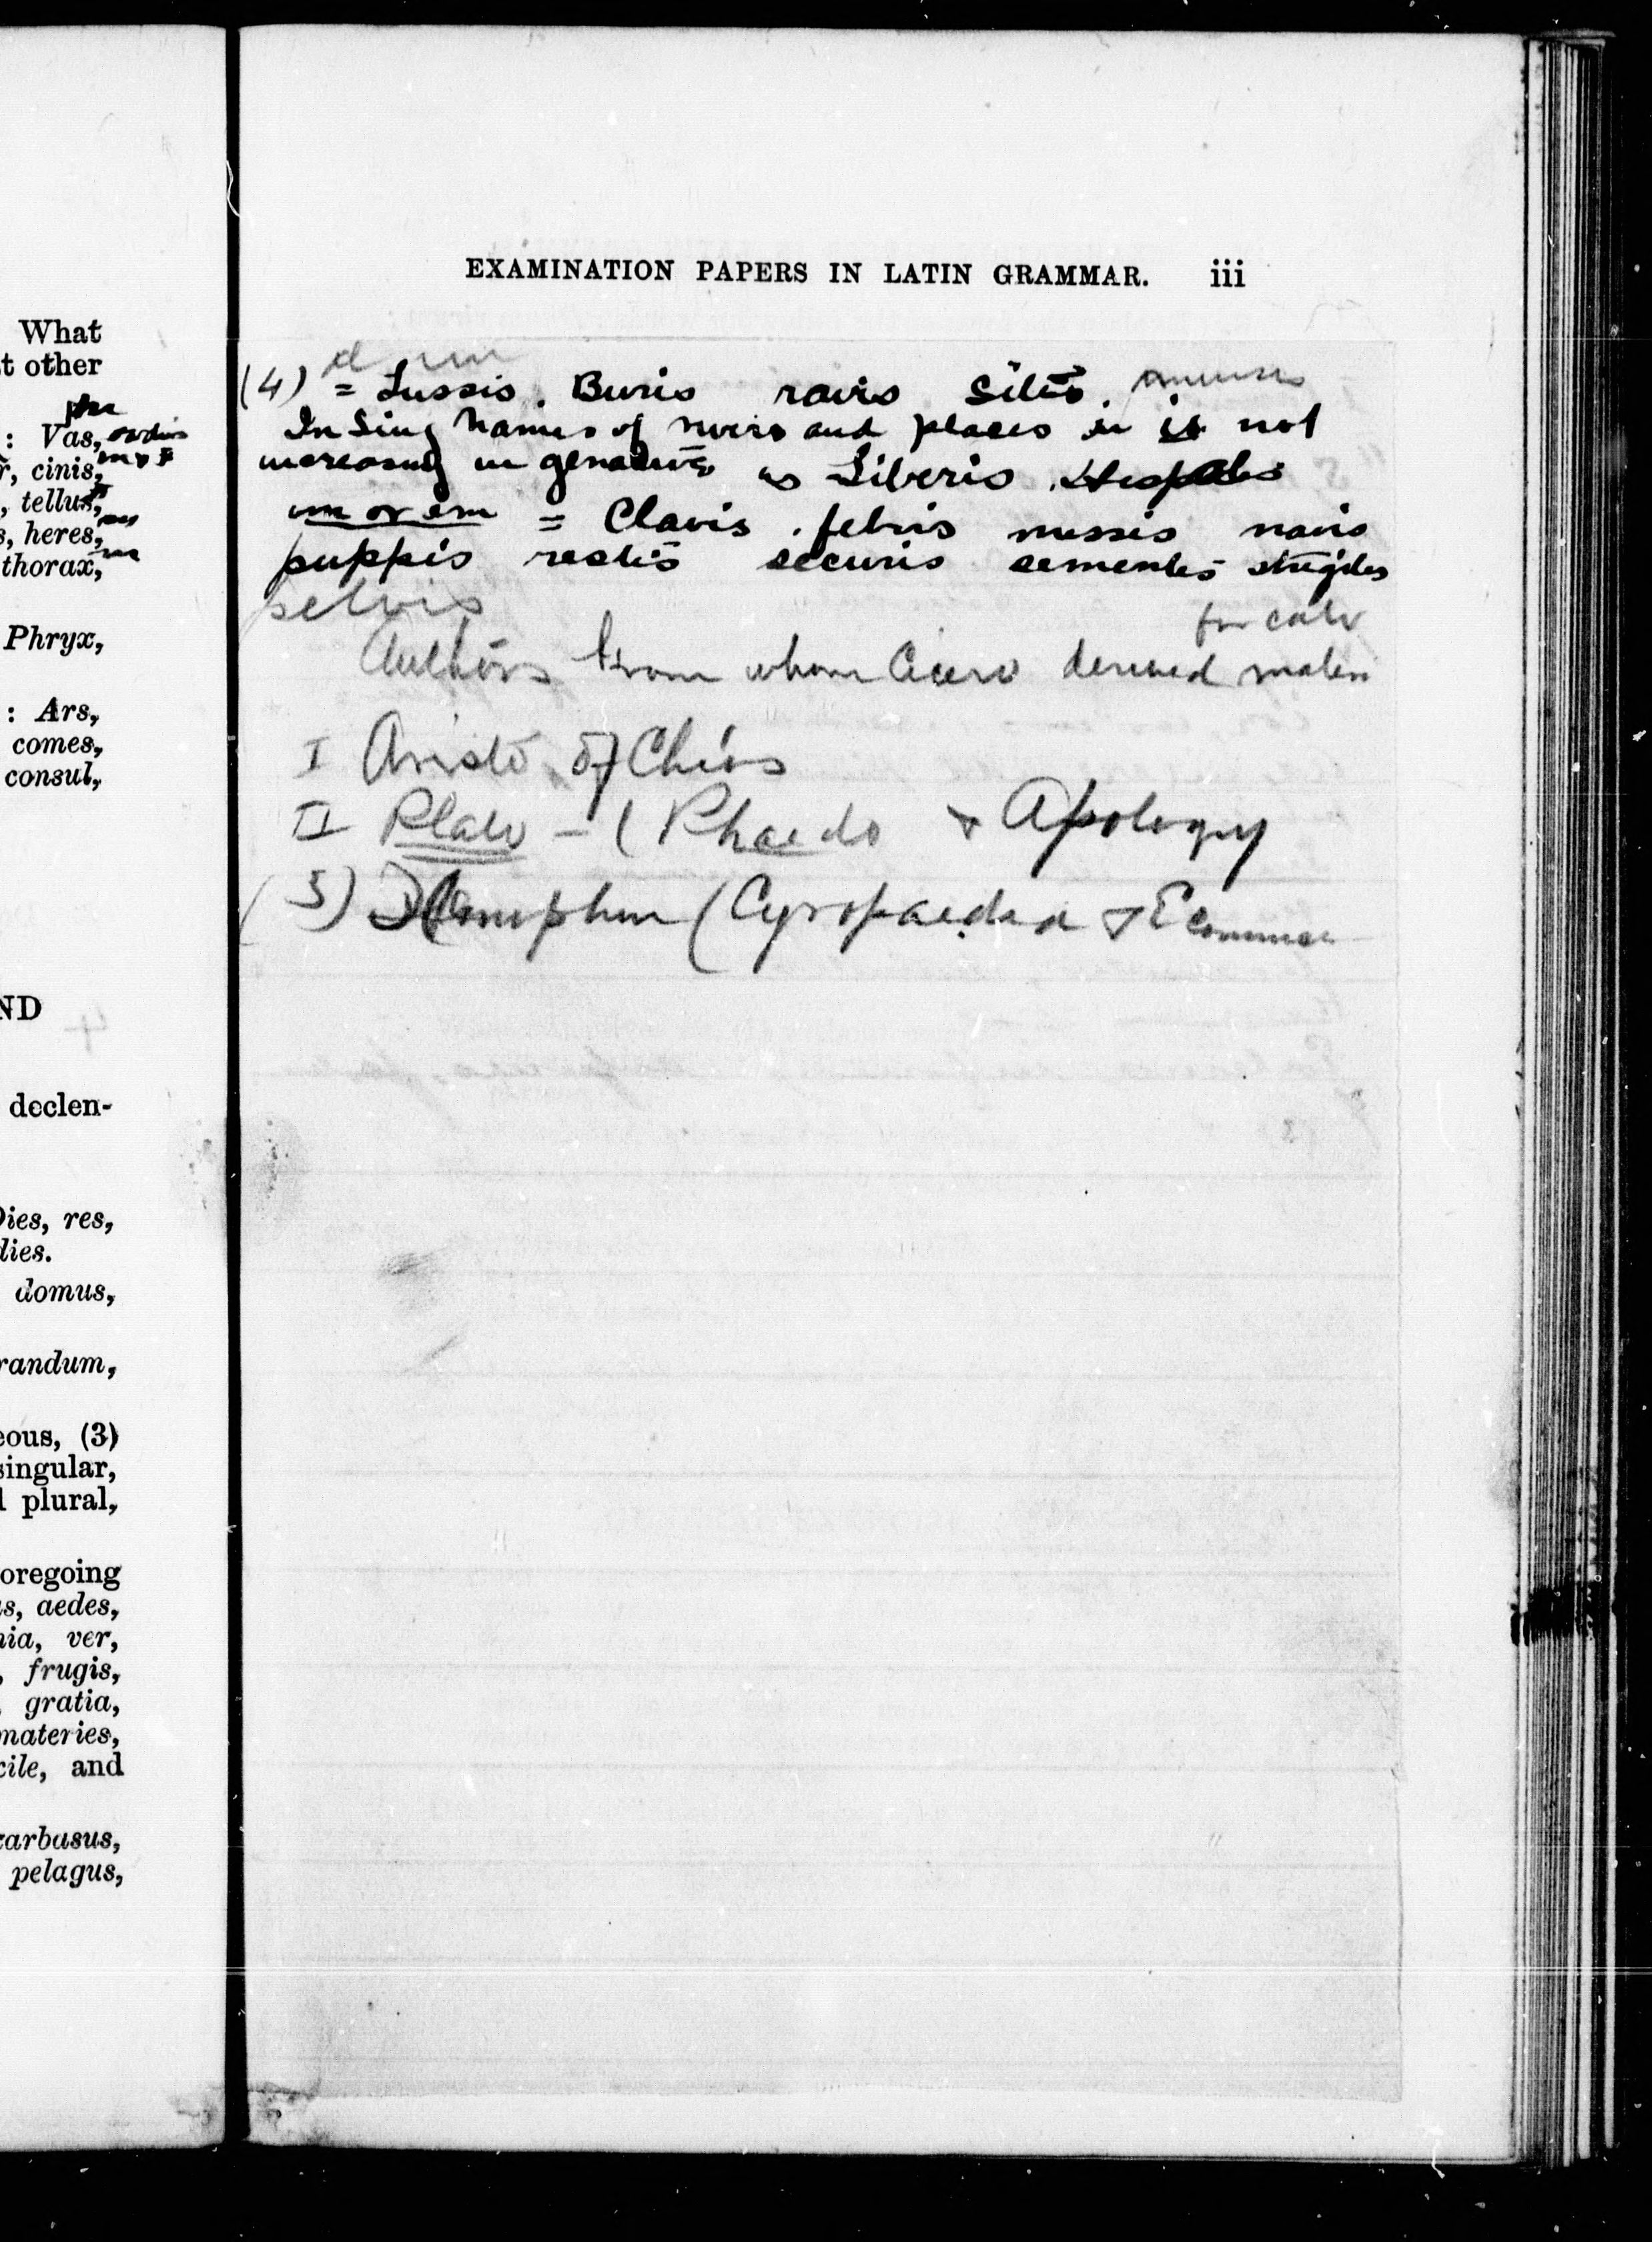 What
t other
: Vas,
r, cinis,
, tellus,
s, heres,
thorax,
Phryx,
: Ars,
comes,
consul,
ND
declen-
Dies, res,
dies.
domus,
randum,
eous, (3)
singular,
l plural,
oregoing
s, aedes,
nia, ver,
, frugis,
gratia,
materies,
cile, and
carbasus,
pelagus,
EXAMINATION PAPERS IN LATIN GRAMMAR. iii
(4) = Tussis. Buris ravis Sitis.
In Sing Names of rivers and places in is not
increasing in genative as Liberis. Hispalis
im or em = Clavis. febris messis navis
puppis restis securis sementis strigilis
pelvis
for cato
Authors from whom Cicero derived mater
I Aristo of Chios
II Plato - ( Phaedo & Apology
(3) Xenophon (Cyropaedia & Economic